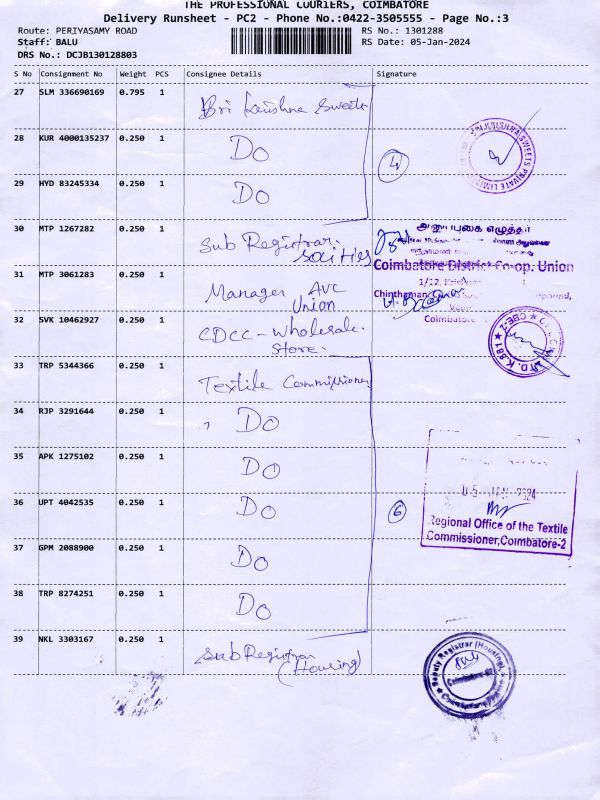 THE PROFESSIONAL COURIERS, COIMBATORE
Delivery Runsheet - PC2 - Phone No.:0422-3505555 - Page No.:3
Route: PERIYASAMY ROAD
RS No.: 1301288
Staff: BALU
RS Date: 05-Jan-2024
DRS No.: DCJB130128803
S No Consignment No Weight PCS Consignee Details Signature
27 SLM 336690169 0.795 1 Sri Krishna Sweets
28 KUR 4000135237 0.250 1 DO
4
KRISHNA SWEETS PRIVATE LIMITED
29 HYD 83245334 0.250 1 DO
30 MTP 1267282 0.250 1 Sub Registrar
Socities
அனுப்புகை எழுத்தர்
Coimbatore District Co-op. Union
31 MTP 3061283 0.250 1 Manager AVC
Union
1/12,
Chinthamani
Coimbatore
32 SVK 10462927 0.250 1 CDCC - wholesale
Store.
33 TRP 5344366 0.250 1 Textile Commissioner
34 RJP 3291644 0.250 1 DO
35 APK 1275102 0.250 1 DO
36 UPT 4042535 0.250 1 DO
6
05 JAN 2024
Regional Office of the Textile
Commissioner,Coimbatore-2
37 GPM 2088900 0.250 1 DO
38 TRP 8274251 0.250 1 DO
39 NKL 3303167 0.250 1 Sub Registrar
(Housing)
Deputy Registrar (Housing)